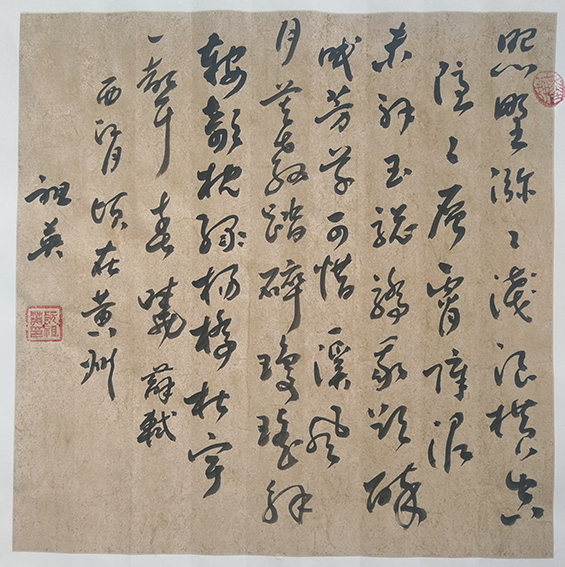 照野瀰〻淺浪橫空
隱〻層霄障泥
未解玉驄驕我欲醉
眠芳草可惜一溪風
月莫教踏碎瓊瑤解
鞍欹枕綠楊橋杜宇
一聲春曉 蘇軾
西江月 頃在黃州
祖英